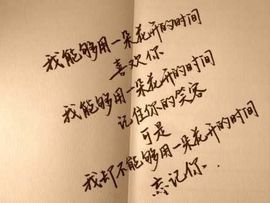 我能够用一朵花开的时间
喜欢你
我能够用一朵花开的时间
记住你的笑容
可是
我却不能够用一朵花开的时间
忘记你.